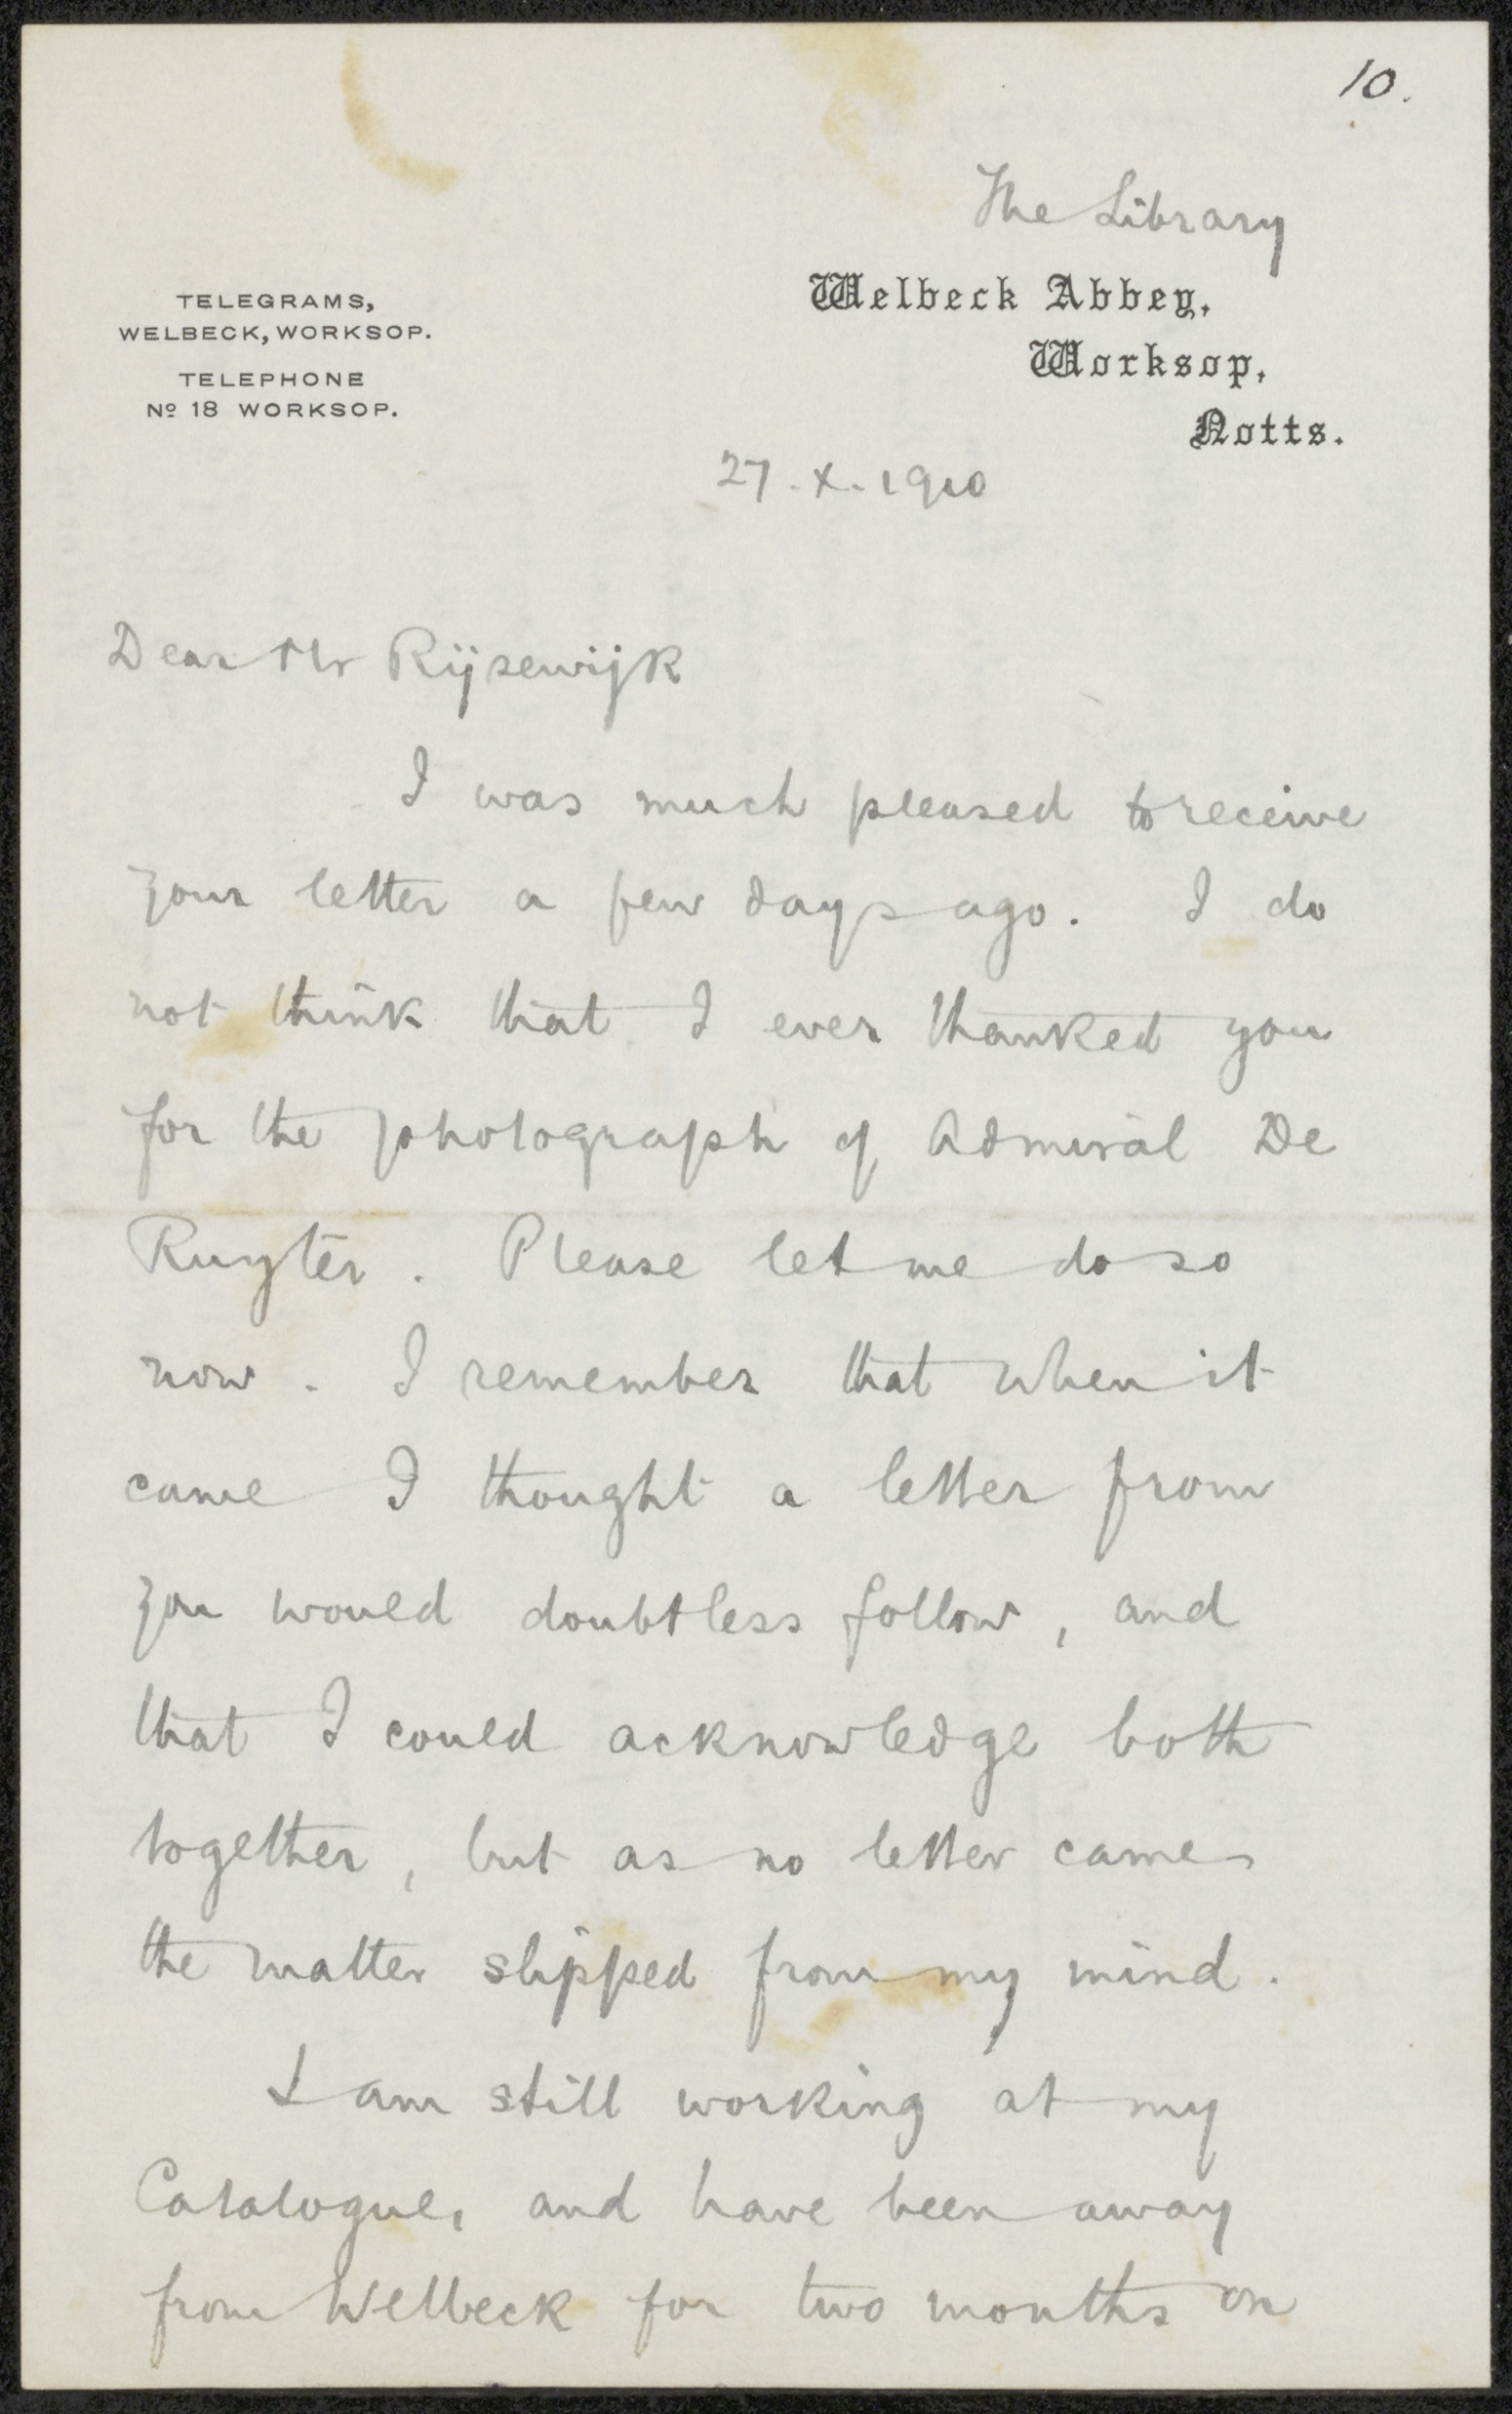 10.
The Library
TELEGRAMS,
WELBECK, WORKSOP.
TELEPHONE
Nº 18 WORKSOP.
Welbeck Abbey,
Worksop,
Notts.
27.X.1910
Dear Mr Rijsewijk
I was much pleased to receive
your letter a few days ago. I do
not think that I ever thanked you
for the photograph of Admiral De
Ruyter. Please let me do so
now. I remember that when it
came I thought a letter from
you would doubtless follow, and
that I could acknowledge both
together, but as no letter came
the matter slipped from my mind.
I am still working at my
Catalogue, and have been away
from Welbeck for two months on